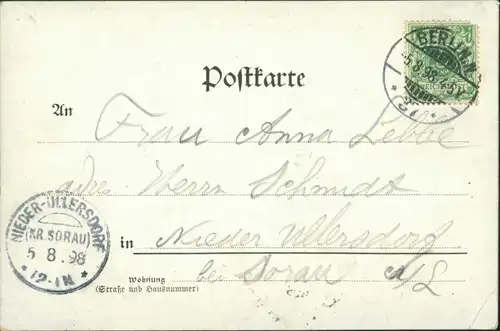 BERLIN
5.8.98
Postkarte
An
Frau Anna
Herrn Schmidt
in Nieder Ullersdorf
bei Sorau N/L
Wohnung
(Straße und Hausnummer)
NIEDER-ULLERSDORF
(KR. SORAU)
5 8 .98
*12-1N*